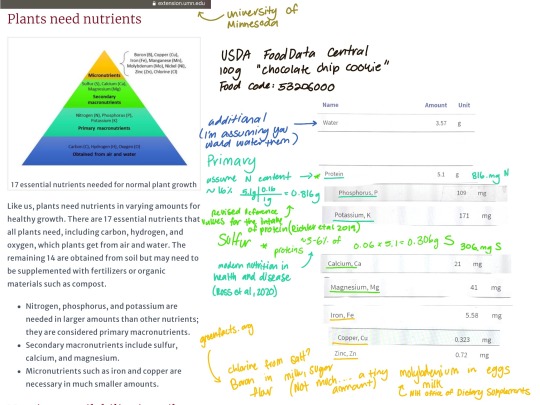 extension.umn.edu
University of
Minnesota
Plants need nutrients
Boron (B), Copper (Cu),
Iron (Fe), Manganese (Mn),
Molybdenum (Mo), Nickel (Ni),
Zinc (Zn), Chlorine (Cl)
Micronutrients
Sulfur (S), Calcium (Ca),
Magnesium (Mg)
Secondary
macronutrients
Nitrogen (N), Phosphorus (P),
Potassium (K)
Primary macronutrients
Carbon (C), Hydrogen (H), Oxygen (O)
Obtained from air and water
17 essential nutrients needed for normal plant growth
Like us, plants need nutrients in varying amounts for
healthy growth. There are 17 essential nutrients that
all plants need, including carbon, hydrogen, and
oxygen, which plants get from air and water. The
remaining 14 are obtained from soil but may need to
be supplemented with fertilizers or organic
materials such as compost.
• Nitrogen, phosphorus, and potassium are
needed in larger amounts than other nutrients;
they are considered primary macronutrients.
• Secondary macronutrients include sulfur,
calcium, and magnesium.
• Micronutrients such as iron and copper are
necessary in much smaller amounts.
USDA FoodData Central
100g "chocolate chip cookie"
Food code: 53206000
Name Amount Unit
additional
(I'm assuming you
would water them)
Water 3.57 g
Primary
assume N content
~16% 5.1g 0.16 = 0.816g
1g
Protein 5.1 g 816. mg N
Phosphorus, P 109 mg
revised reference
values for the intake
of protein (Richter et al. 2019)
Potassium, K 171 mg
Sulfur ~5-6% of
proteins
0.06 × 5.1 = 0.306g S 306. mg S
modern nutrition in
health and disease
(Ross et al, 2020)
Calcium, Ca 21 mg
Magnesium, Mg 41 mg
Iron, Fe 5.58 mg
Copper, Cu 0.323 mg
Zinc, Zn 0.72 mg
greenfacts.org
chlorine from salt?
Boron in milk, sugar
flour
(Not much... a tiny
ammount)
molybdenum in eggs
milk
NIH office of Dietary Supplements